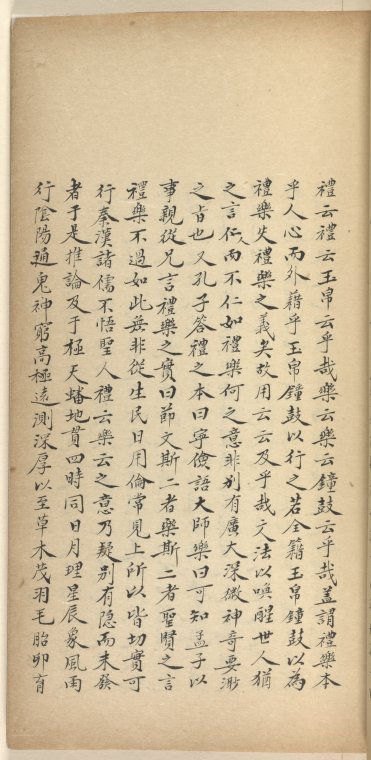 禮云禮云玉帛云乎哉樂云樂云鐘鼓云乎哉蓋謂禮樂本
乎人心而外藉乎玉帛鐘鼓以行之若全籍玉帛鐘鼓以為
禮樂失禮樂之義矣故用云云及乎哉文法以喚醒世人猶
之言仁人而不仁如禮樂何之意非别有廣大深微神奇要渺
之旨也又孔子答禮之本曰寧儉語大師樂曰可知孟子以
事親從兄言禮樂之實曰節文斯二者樂斯二者聖賢之言
禮樂不過如此無非從生民日用倫常見上所以皆切實可
行秦漢諸儒不悟聖人禮云樂云之意乃疑别有隱而未發
者于是推論及于極天蟠地貫四時同日月理星辰象風雨
行陰陽通鬼神窮高極遠測深厚以至草木茂羽毛胎卵育